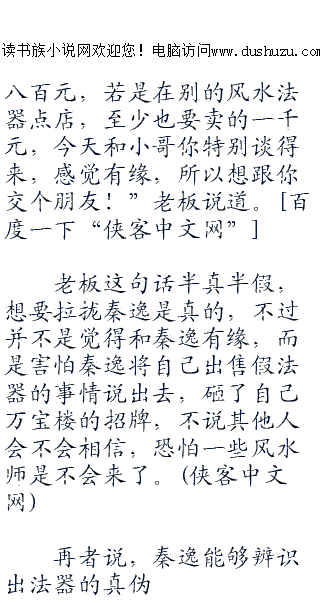 读书族小说网欢迎您！电脑访问www.dushuzu.com
八百元，若是在别的风水法
器点店，至少也要卖的一千
元，今天和小哥你特别谈得
来，感觉有缘，所以想跟你
交个朋友！”老板说道。[百
度一下“侠客中文网”]
老板这句话半真半假，
想要拉拢秦逸是真的，不过
并不是觉得和秦逸有缘，而
是害怕秦逸将自己出售假法
器的事情说出去，砸了自己
万宝楼的招牌，不说其他人
会不会相信，恐怕一些风水
师是不会来了。(侠客中文
网)
再者说，秦逸能够辨识
出法器的真伪